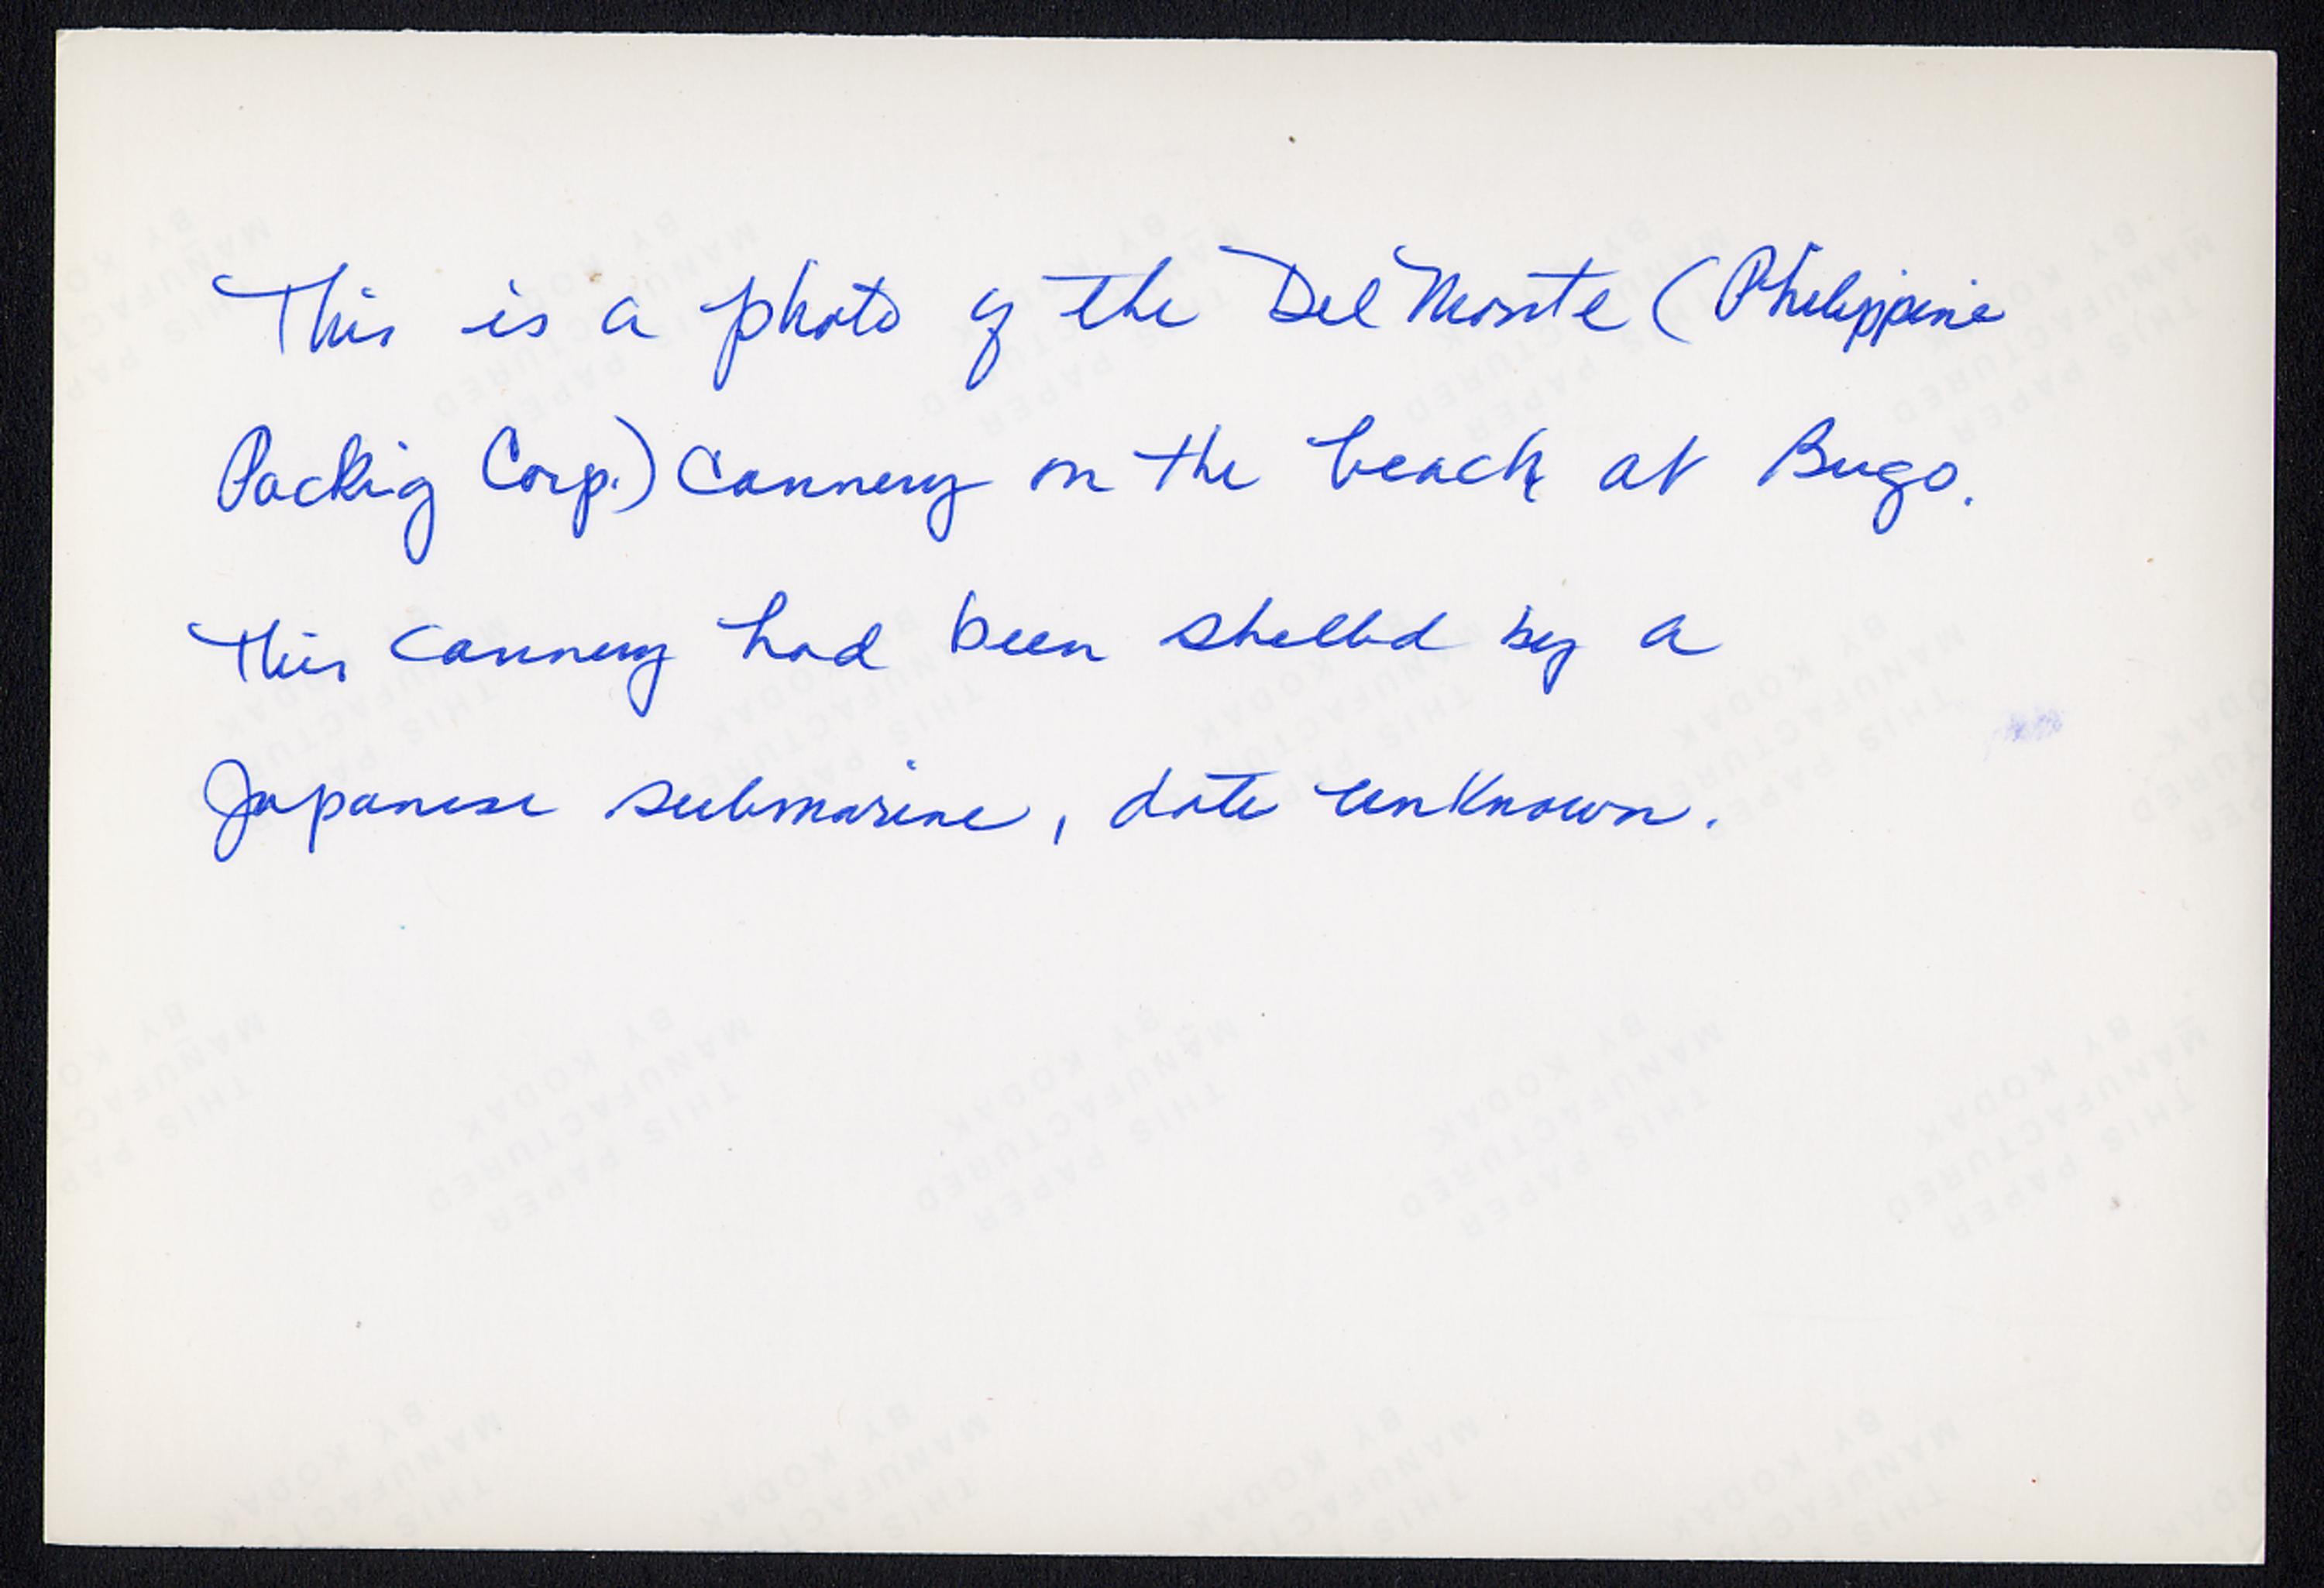 This is a photo of the Del Monte (Philippine
Packing Corp.) cannery on the beach at Bugo.
This cannery had been shelled by a
Japanese submarine, date unknown.
THIS PAPER
MANUFACTURED
BY KODAK